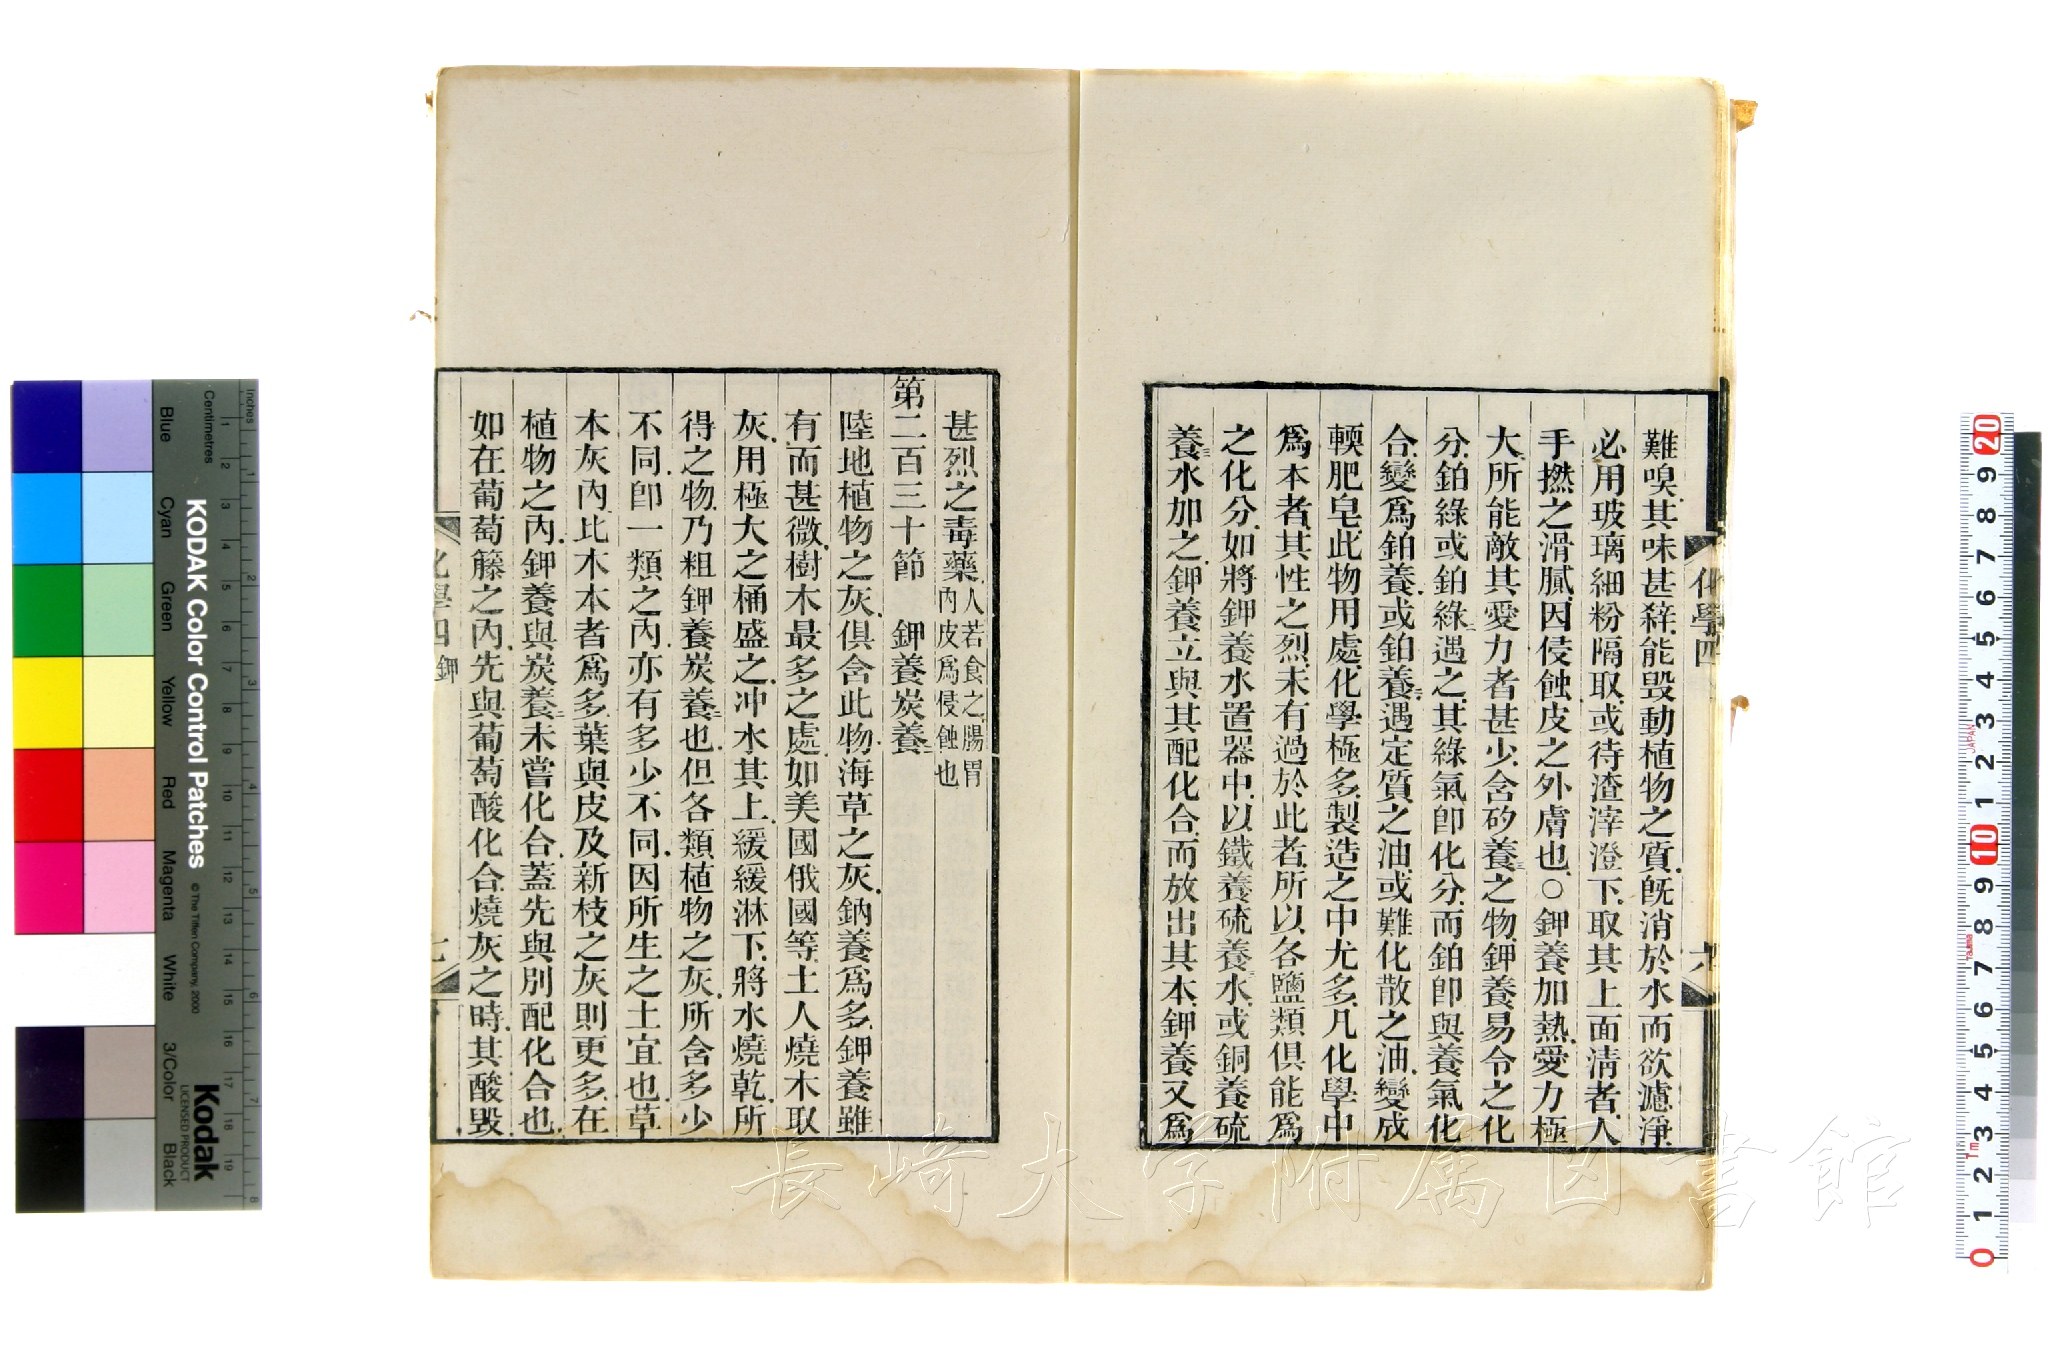 難嗅其味甚辢能毁動植物之質旣消於水而欲濾淨
必用玻璃細粉隔取或待渣滓澄下取其上面淸者人
手撚之滑膩因侵蝕皮之外膚也○鉀養加熱愛力極
大所能敵其愛力者甚少含矽養三之物鉀養易令之化
分鉑綠或鉑綠二遇之其綠氣卽化分而鉑卽與養氣化
合變爲鉑養或鉑養二遇定質之油或難化散之油變成
輭肥皂此物用處化學極多製造之中尤多凡化學中
爲本者其性之烈未有過於此者所以各鹽類俱能爲
之化分如將鉀養水置器中以鐵養硫養三水或銅養硫
養三水加之鉀養立與其配化合而放出其本鉀養又爲
化學四
六
甚烈之毒藥人若食之腸胃
內皮爲侵蝕也
第二百三十節　鉀養炭養二
陸地植物之灰俱含此物海草之灰鈉養爲多鉀養雖
有而甚微樹木最多之處如美國俄國等土人燒木取
灰用極大之桶盛之冲水其上緩緩淋下將水燒乾所
得之物乃粗鉀養炭養二也但各類植物之灰所含多少
不同卽一類之內亦有多少不同因所生之土宜也草
本灰內比木本者爲多葉與皮及新枝之灰則更多在
植物之內鉀養與炭養二未嘗化合蓋先與別配化合也
如在葡萄籐之內先與葡萄酸化合燒灰之時其酸毁
化學四 鉀
七
長崎大学附属図書館
KODAK Color Control Patches
© The Tiffen Company, 2000
Kodak
LICENSED PRODUCT
Inches
Centimetres
Blue
Cyan
Green
Yellow
Red
Magenta
White
3/Color
Black